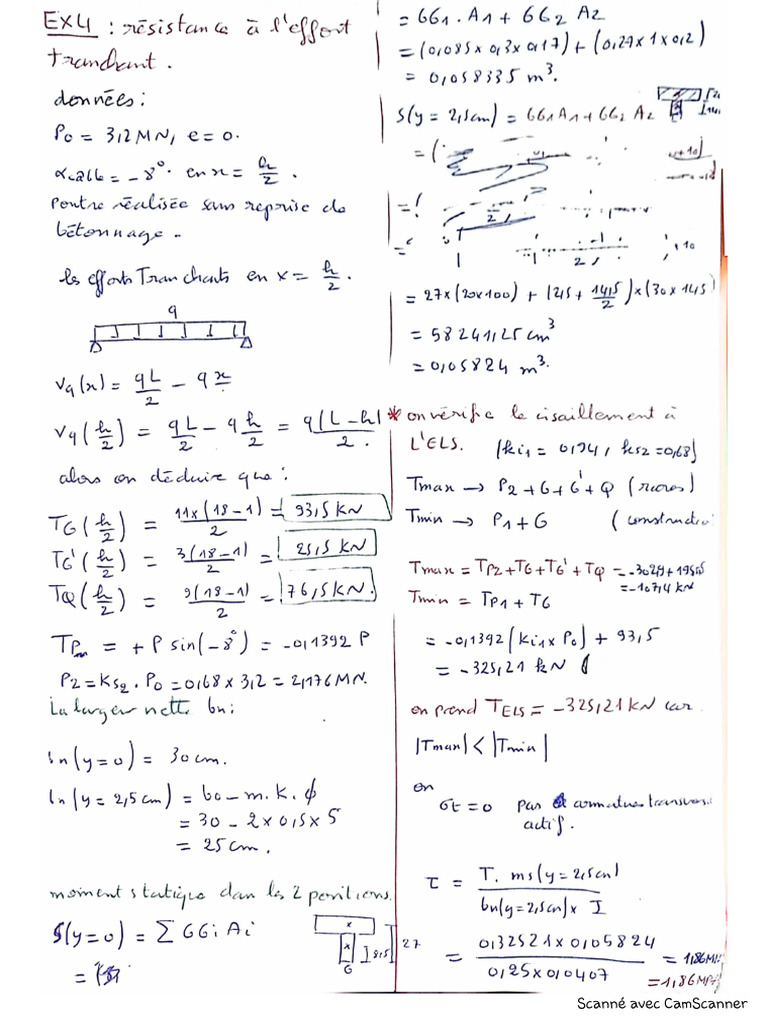 EX4 : résistance à l'effort
tranchant.
données :
P0 = 3,2 MN, e = 0.
= -8° en x = h/2.
Poutre réalisée sans reprise de
bétonnage.
les efforts Tranchants en x = h/2.
q
Vq(x) = qL/2 - qx
Vq(h/2) = qL/2 - qh/2 = q(L-h)/2.
alors on déduire que :
TG(h/2) = 11x(18-1)/2 = 93,5 kN
TG'(h/2) = 3(18-1)/2 = 25,5 kN
TQ(h/2) = 9(18-1)/2 = 76,5 kN.
TPm = + P sin(-8°) = -0,1392 P
P2 = Ks2 . P0 = 0,68 x 3,2 = 2,176 MN.
La larger nette bn :
bn(y=0) = 30 cm.
bn(y=2,5 cm) = b0 - m.k.ϕ
= 30 - 2x0,5x5
= 25 cm.
moment statique dan les 2 positions.
S(y=0) = Σ GGi Ai
x
x
G
8,5
27
=
= GG1 . A1 + GG2 A2
= (0,085x0,3x0,17) + (0,27x1x0,2)
= 0,058335 m³.
S(y=2,5cm) = GG1 A1 + GG2 A2
= 27x(20x100) + (2,5 + 14,5/2)x(30x14,5)
= 58241,25 cm³
= 0,05824 m³.
* on vérifie le cisaillement à
L'ELS. (ki1 = 0,74, ks2 = 0,68)
Tmax → P2+G+G'+Q
Tmin → P1+G
Tmax = TP2+TG+TG'+TQ = -302,9 + 195,5
= -107,4 kN
Tmin = TP1 + TG
= -0,1392(Ki1 x P0) + 93,5
= -325,21 kN
on prend TELS = -325,21 kN car
|Tmax| < |Tmin|
on
σt = 0 pas armatures
actif.
τ = T. ms(y=2,5cm) / bn(y=2,5cm) x I
= 0,32521x0,05824 / 0,25x0,0407 = 1,86
= 1,86
Scanné avec CamScanner